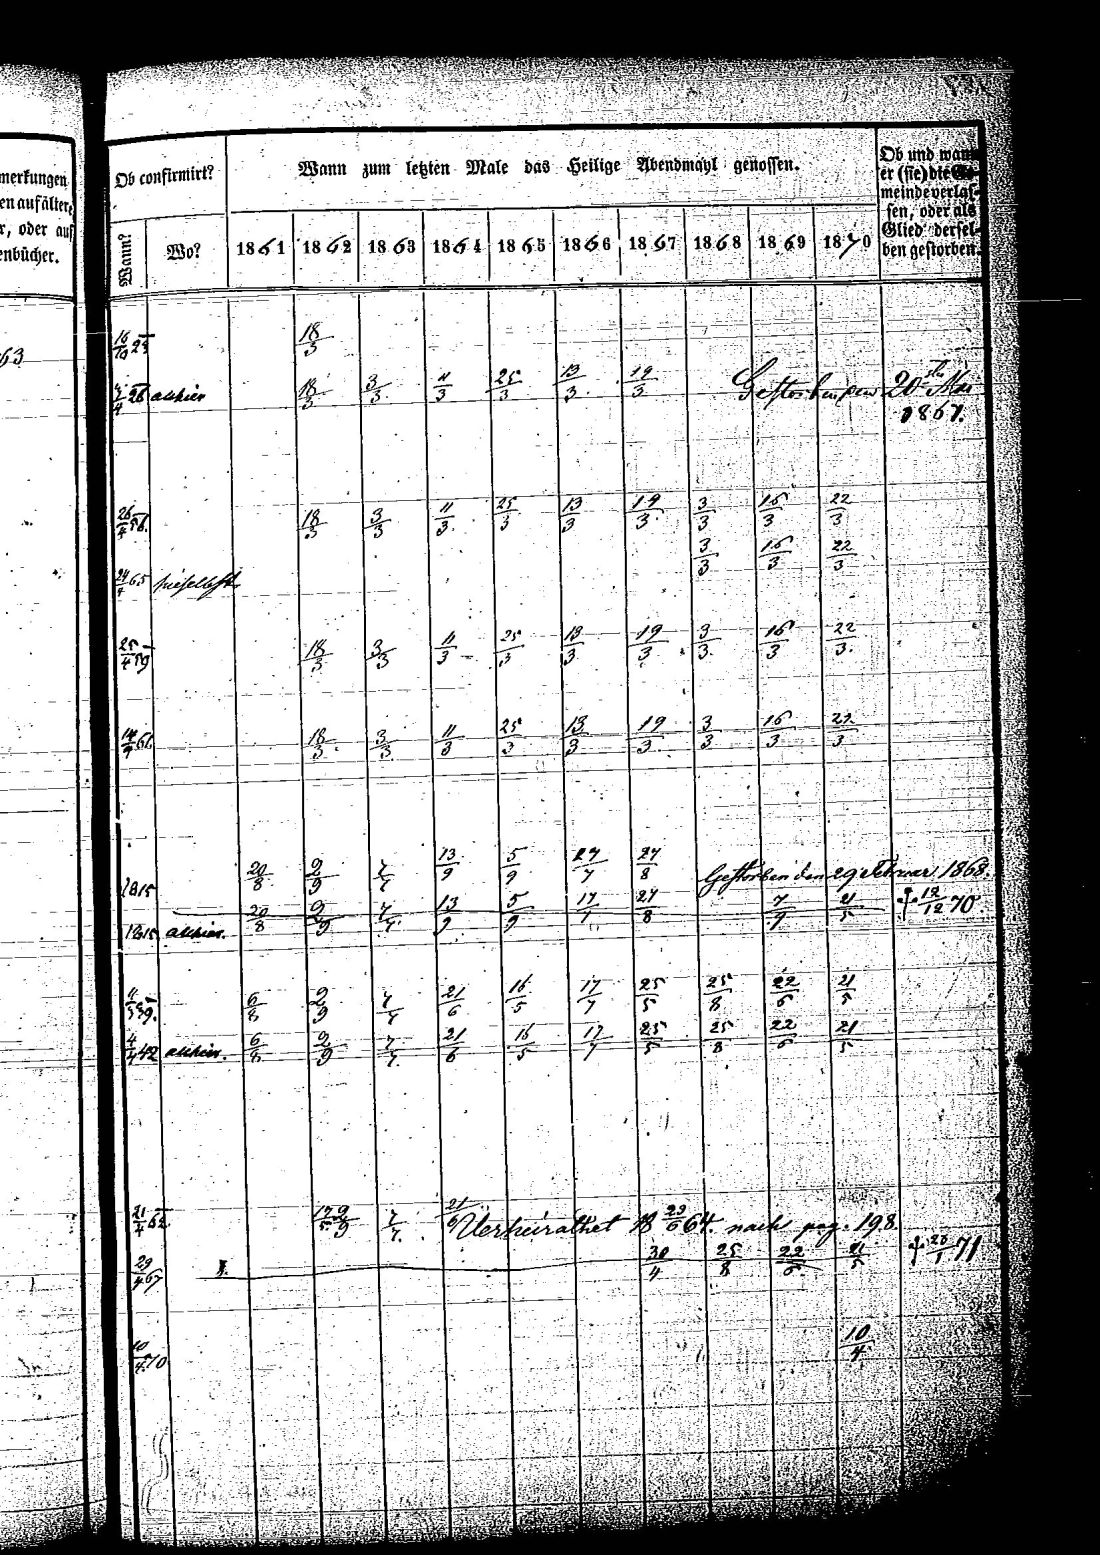 merkungen
en auf ältere
r, oder auf
enbücher.
63
Ob confirmirt?
Wann?
Wo?
Wann zum letzten Male das Heilige Abendmahl genossen.
1861 1862 1863 1864 1865 1866 1867 1868 1869 1870
Ob und wann
er (sie) die Ge-
meinde verlas-
sen, oder als
Glied dersel-
ben gestorben.
18/3
allhier 18/3 3/3 11/3 25/3 13/3 19/3 Gestorben den 20sten Mai
1867.
26/4 56. 18/3 3/3 11/3 25/3 13/3 19/3 3/3 16/3 22/3
3/3 16/3 22/3
24/4 65 hieselbst
25/4 59 18/3 3/3 11/3 25/3 13/3 19/3 3/3 16/3 22/3.
18/3. 3/3. 11/3 25/3 13/3 19/3. 3/3 16/3 22/3
1815 20/8 2/9 7/7 13/9 5/9 27/7 27/8 Gestorben den 29 Februar 1868.
allhier. 20/8 2/9 7/7. 13/9 5/9 27/8 7/9 21/5 † 12/12 70
6/8 2/9 7/7 21/6 16/5 17/7 25/5 25/8 22/6 21/5
4/4 42 allhier. 6/8 2/9 7/7. 21/6 16/5 17/7 25/5 25/8 22/6 21/5
7/7. 21/6 Verheirathet 18 23/6 64. nach pag. 198.
29/4 67 30/4 25/8 22/6. 21/5 † 71
10/4 70 10/4.